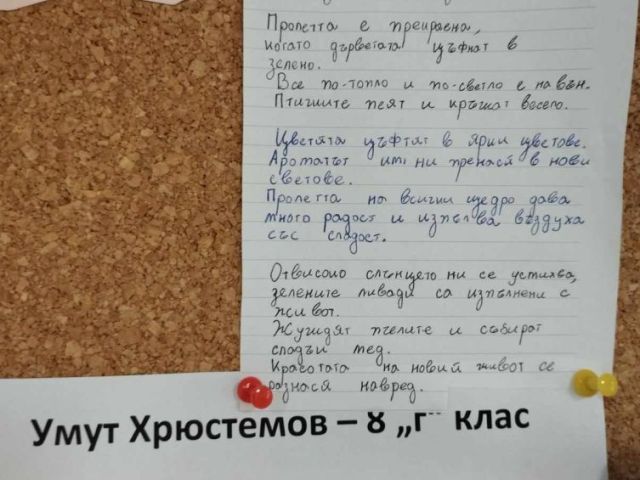 Пролетта е прекрасна,
когато дърветата цъфнат в
зелено.
Все по-топло и по-светло е навън.
Птичките пеят и кръжат весело.
Цветята цъфтят в ярки цветове.
Ароматът им ни пренася в нови
светове.
Пролетта на всички щедро дава
много радост и изпълва въздуха
със сладост.
Отвисоко слънцето ни се усмихва,
зелените ливади са изпълнени с
живот.
Жужидят пчелите и събират
сладък мед.
Красотата на новий живот се
разнася навред.
Умут Хрюстемов – 8 „г" клас